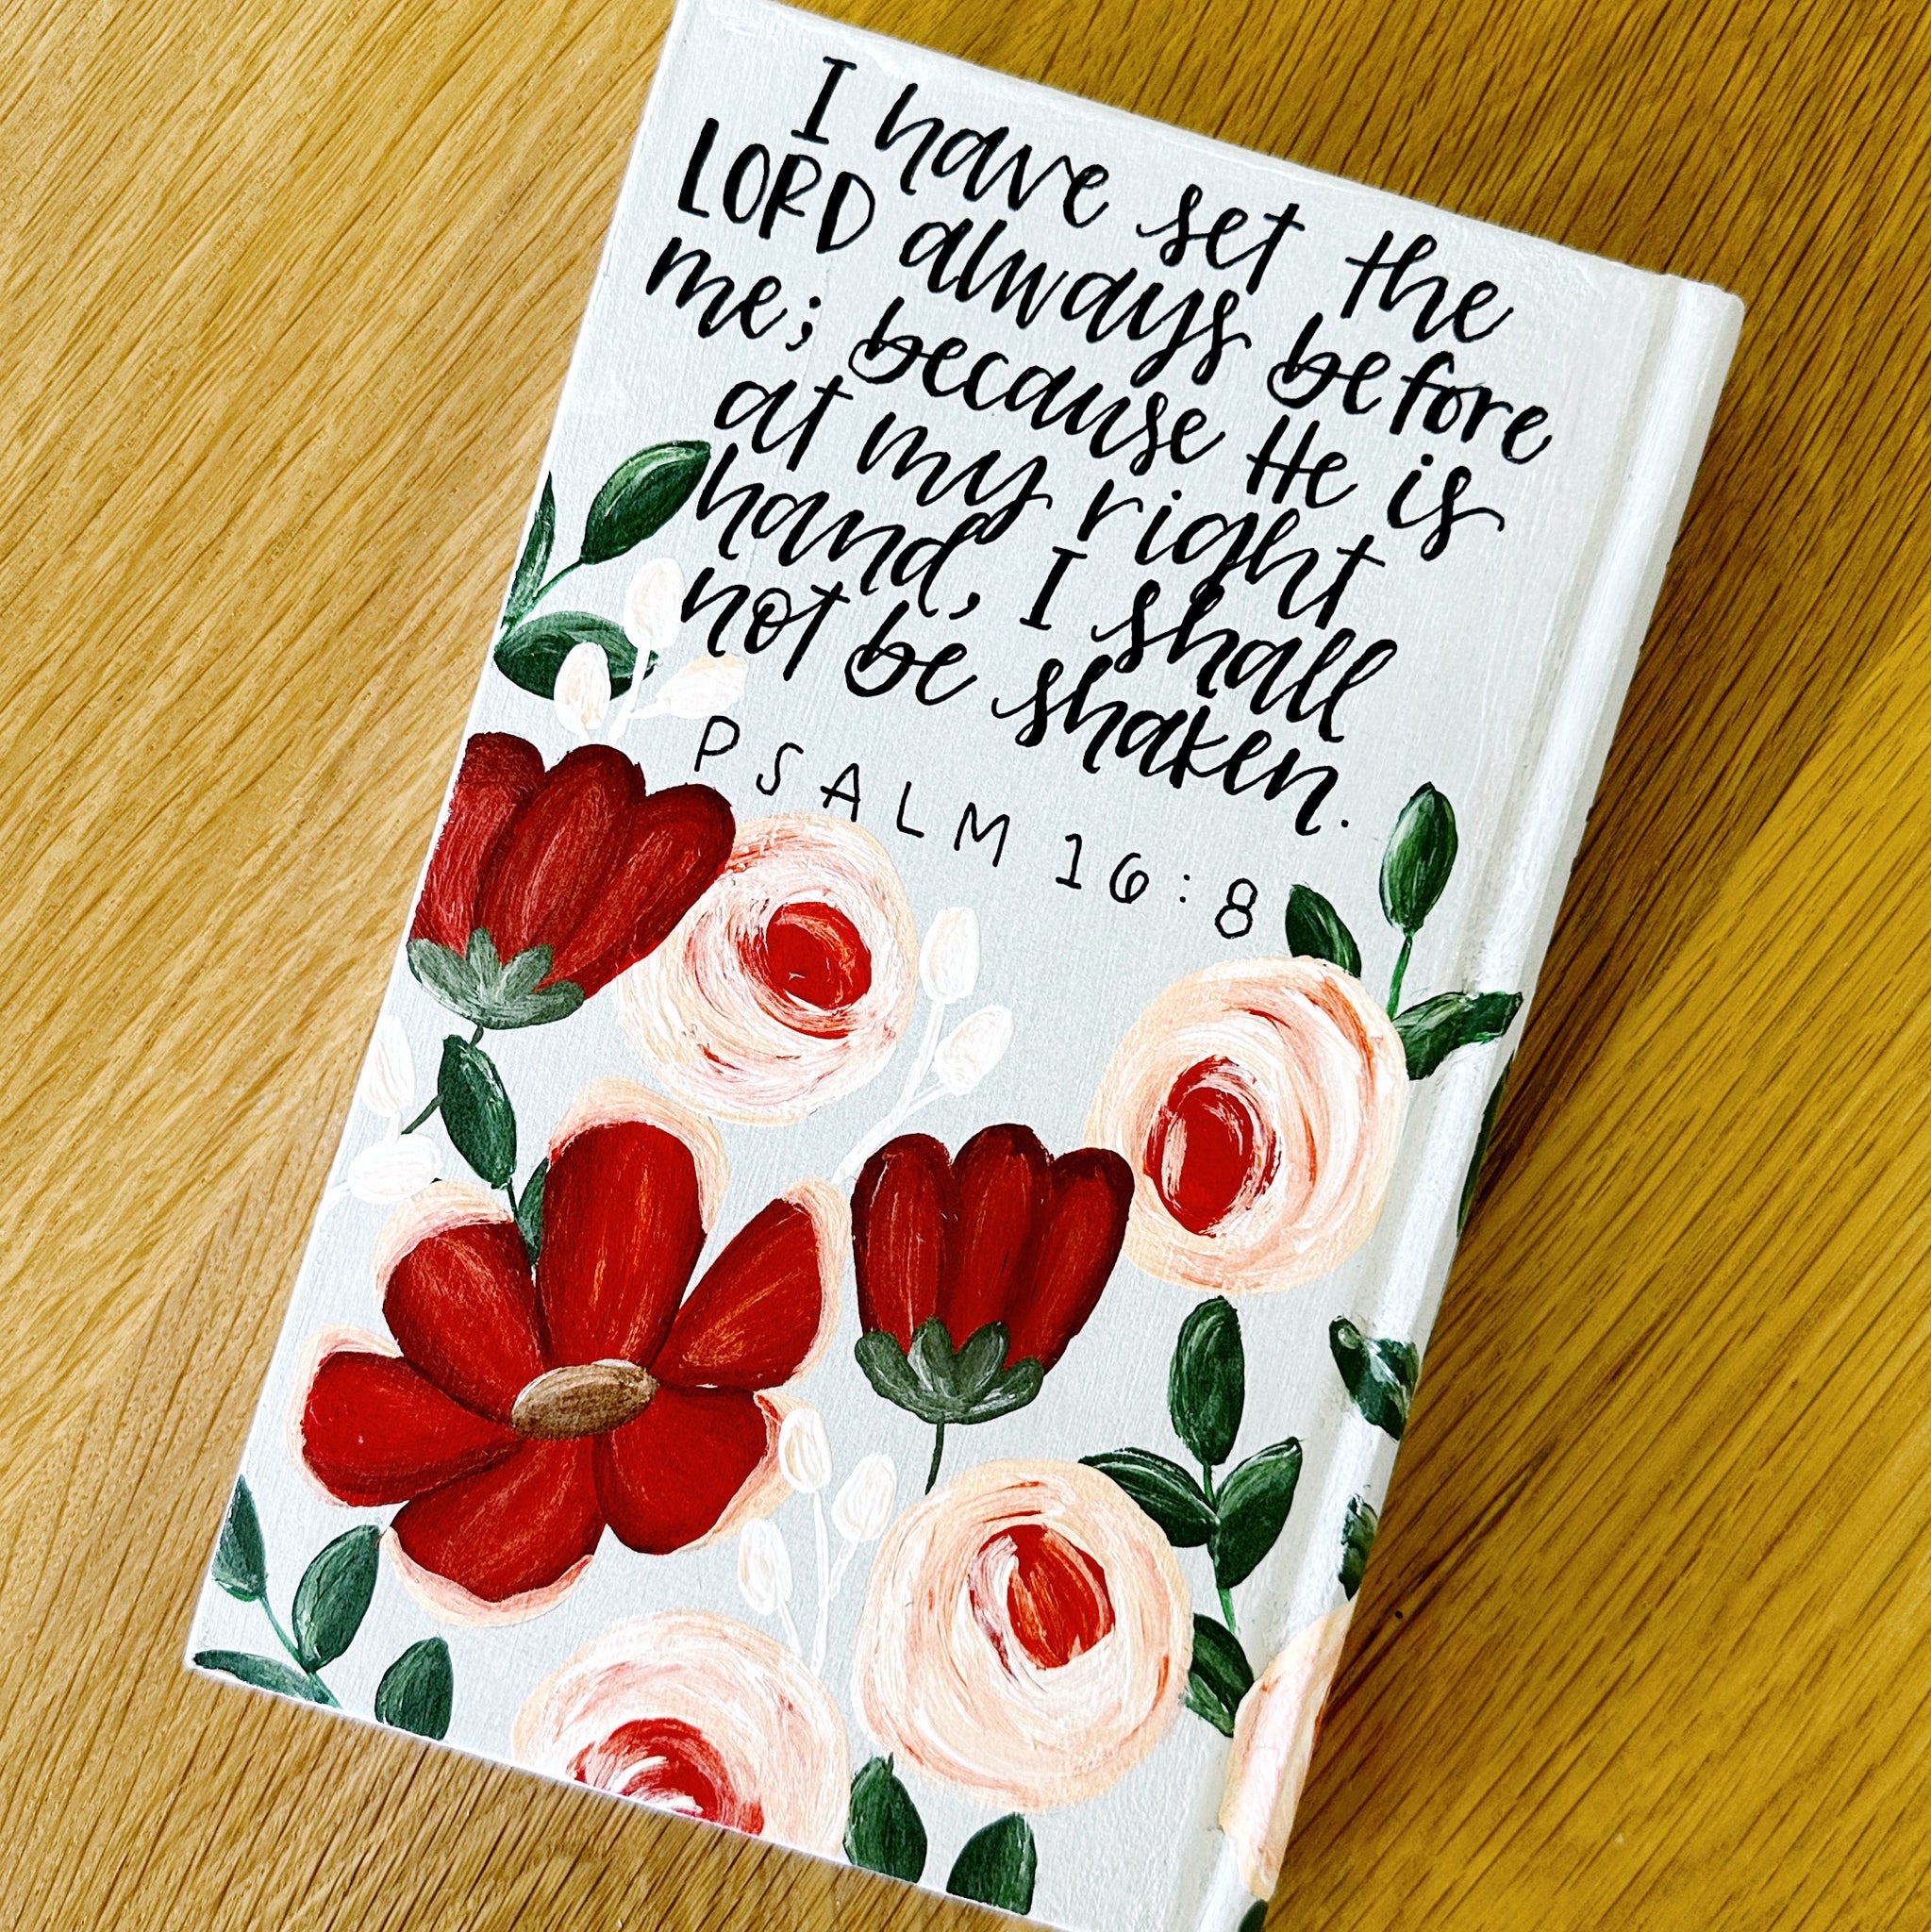 I have set the
LORD always before
me; because He is
at my right
hand, I shall
not be shaken.
PSALM 16:8